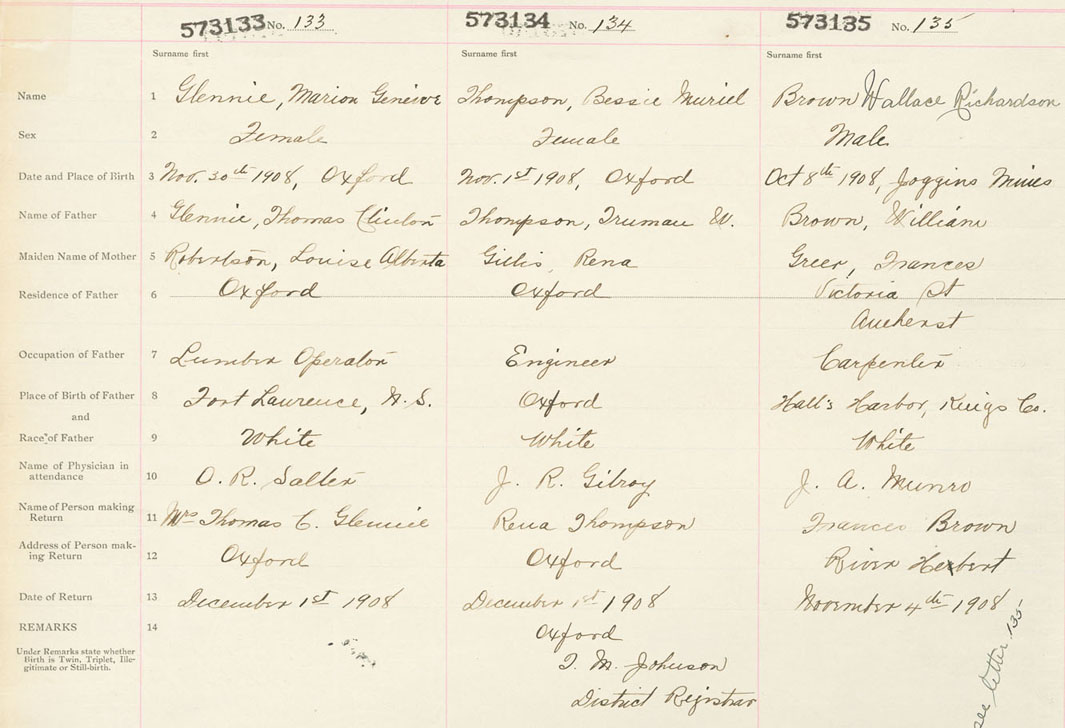 573133 No. 133 573134 No. 134 573135 No. 135
Surname first Surname first Surname first
Name 1 Glennie, Marion Genieve Thompson, Bessie Muriel Brown Wallace Richardson
Sex 2 Female Female Male
Date and Place of Birth 3 Nov. 30th 1908, Oxford Nov. 1st 1908, Oxford Oct 8th 1908, Joggins Mines
Name of Father 4 Glennie, Thomas Clinton Thompson, Truman W. Brown, William
Maiden Name of Mother 5 Robertson, Louise Alberta Gillis, Rena Greer, Frances
Residence of Father 6 Oxford Oxford Victoria St
Amherst
Occupation of Father 7 Lumber Operator Engineer Carpenter
Place of Birth of Father 8 Fort Laurence, N.S. Oxford Hall's Harbor, Kings Co.
and
Race of Father 9 White White White
Name of Physician in
attendance 10 O. R. Salter J. R. Gilroy J. A. Munro
Name of Person making
Return 11 Mrs Thomas C. Glennie Rena Thompson Frances Brown
Address of Person mak-
ing Return 12 Oxford Oxford River Herbert
Date of Return 13 December 1st 1908 December 1st 1908 November 4th 1908
REMARKS 14 Oxford
Under Remarks state whether
Birth is Twin, Triplet, Ille-
gitimate or Still-birth.
T. M. Johnson
District Registrar
see letter 135